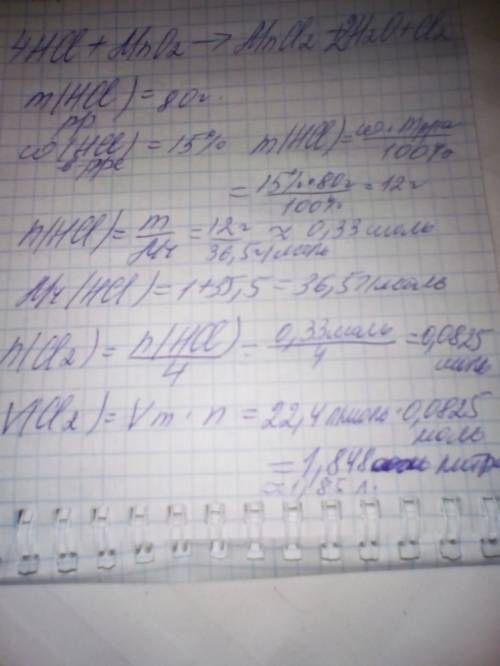 4HCl + MnO2 → MnCl2 + 2H2O + Cl2
m(HCl) = 80г.
р-р
ω(HCl) = 15% m(HCl) = ω · mр-ра / 100%
в р-ре
= 15% · 80г / 100% = 12г
n(HCl) = m / Mr = 12г / 36,5г/моль ≈ 0,33 моль
Mr(HCl) = 1+35,5 = 36,5г/моль
n(Cl2) = n(HCl) / 4 = 0,33 моль / 4 = 0,0825 моль
V(Cl2) = Vm · n = 22,4 л/моль · 0,0825 моль
= 1,848 литра
≈ 1,85 л.